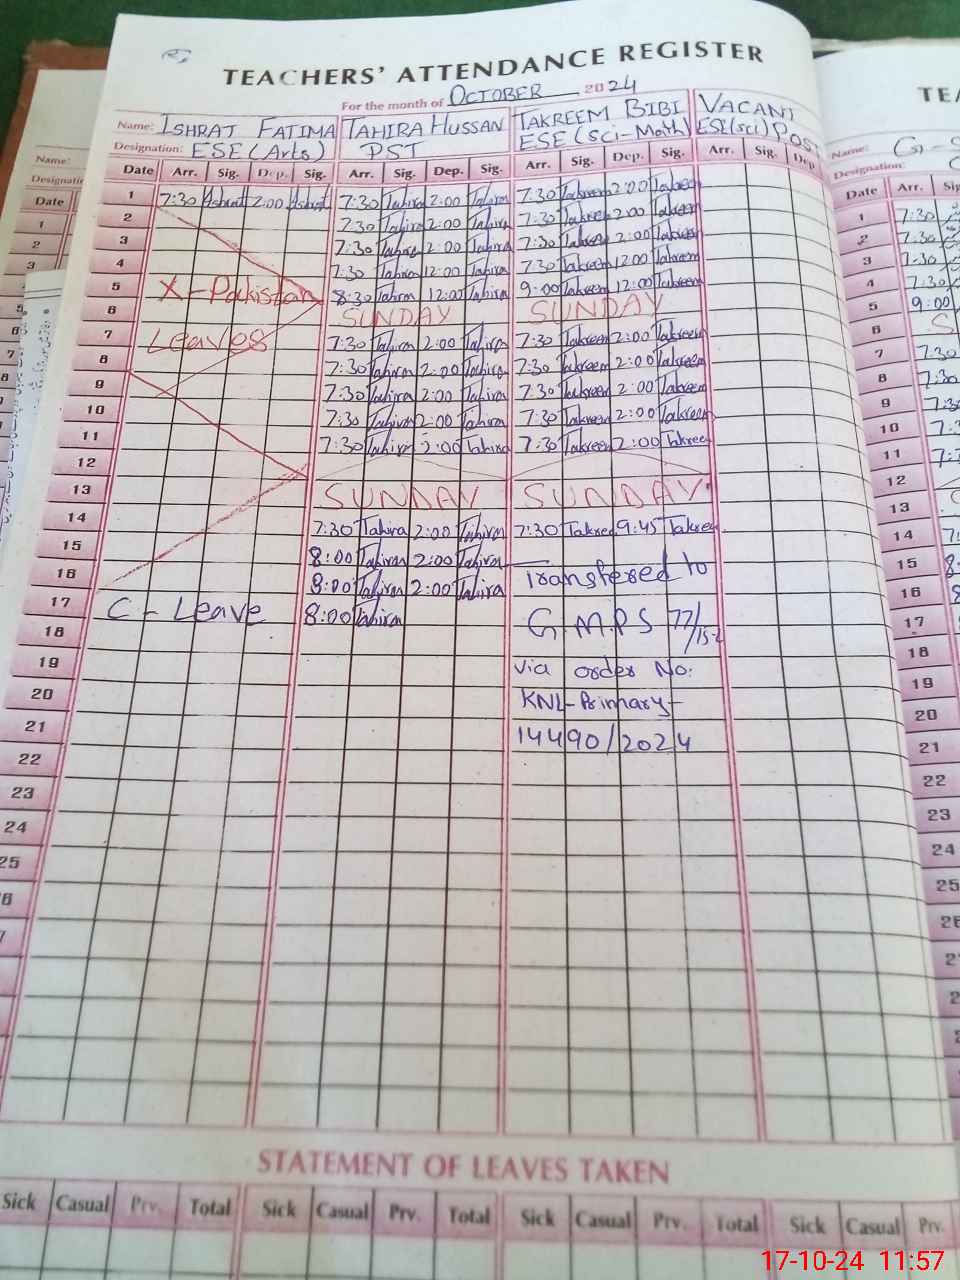 TEACHERS' ATTENDANCE REGISTER
For the month of OCTOBER 2024
Name: ISHRAT FATIMA TAHIRA HUSSAN TAKREEM BIBI VACANT
Designation: ESE (Arts) PST ESE (Sci-Math) ESE (Sci) POST
Date Arr. Sig. Dep. Sig. Arr. Sig. Dep. Sig. Arr. Sig. Dep. Sig. Arr. Sig. Dep
1 7:30 Ishrat 2:00 Ishrat 7:30 Tahira 2:00 Tahira 7:30 Takreem 2:00 Takreem
2 7:30 Tahira 2:00 Tahira 7:30 Takreem 2:00 Takreem
3 7:30 Tahira 2:00 Tahira 7:30 Takreem 2:00 Takreem
4 7:30 Tahira 12:00 Tahira 7:30 Takreem 12:00 Takreem
5 X-Pakistan 8:30 Tahira 12:00 Tahira 9:00 Takreem 12:00 Takreem
6 SUNDAY SUNDAY
7 Leaves 7:30 Tahira 2:00 Tahira 7:30 Takreem 2:00 Takreem
8 7:30 Tahira 2:00 Tahira 7:30 Takreem 2:00 Takreem
9 7:30 Tahira 2:00 Tahira 7:30 Takreem 2:00 Takreem
10 7:30 Tahira 2:00 Tahira 7:30 Takreem 2:00 Takreem
11 7:30 Tahira 2:00 Tahira 7:30 Takreem 2:00 Takree
12
13 SUNDAY SUNDAY
14 7:30 Tahira 2:00 Tahira 7:30 Takree 9:45 Takree
15 8:00 Tahira 2:00 Tahira Transfered to
16 8:00 Tahira 2:00 Tahira
17 C - Leave 8:00 Tahira G.M.P.S 77/15-L
18
19 via order No:
20 KNL-Primary-
21 14490/2024
22
23
24
25
STATEMENT OF LEAVES TAKEN
Sick Casual Prv. Total Sick Casual Prv. Total Sick Casual Prv. Total Sick Casual Prv.
17-10-24 11:57
Name:
Designation:
Date Arr.
1 7:30
2 7:30
3 7:30
4 7:30
5 9:00
6 S
7 7:30
8 7:30
9
10
11
12
13
14
15
16
17
18
19
20
21
22
23
24
25